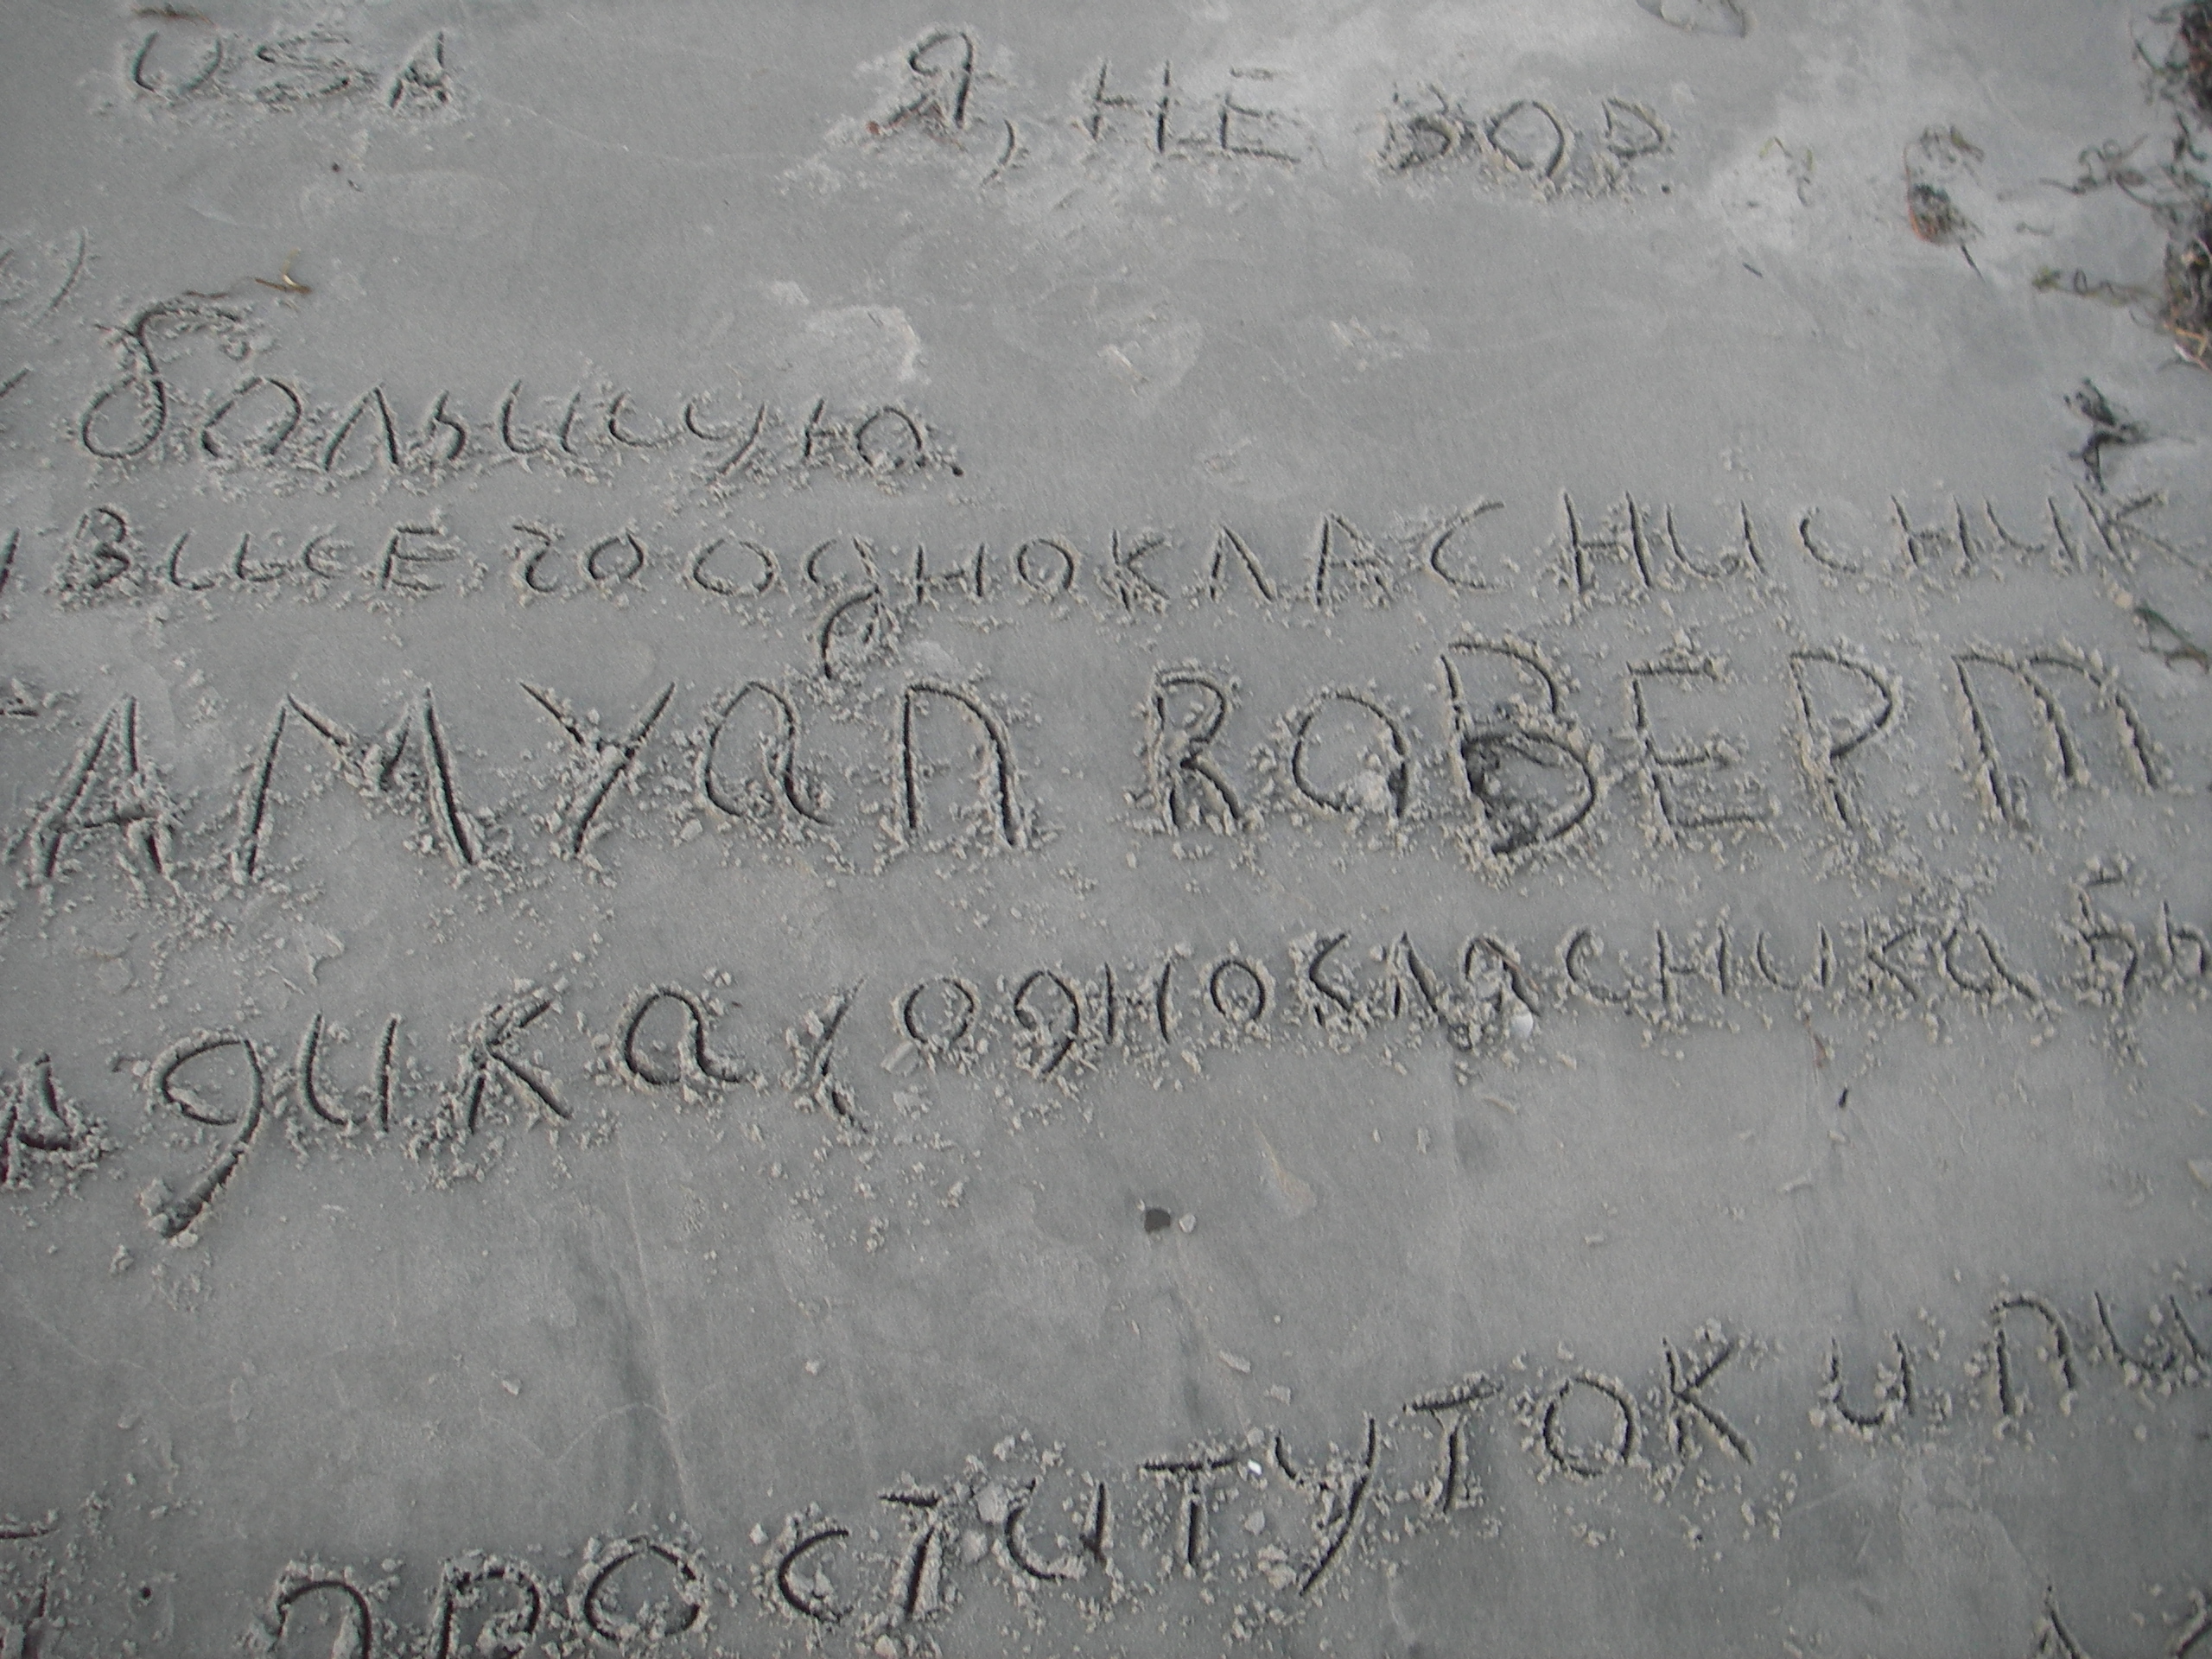 USA Я, НЕ ВОР
большую.
ВШЕЕ го однокласнисник
АМУАП RОВЕРТ
АДИКА (однокласника Бы
ПРОСТИТУТОК и ПИ